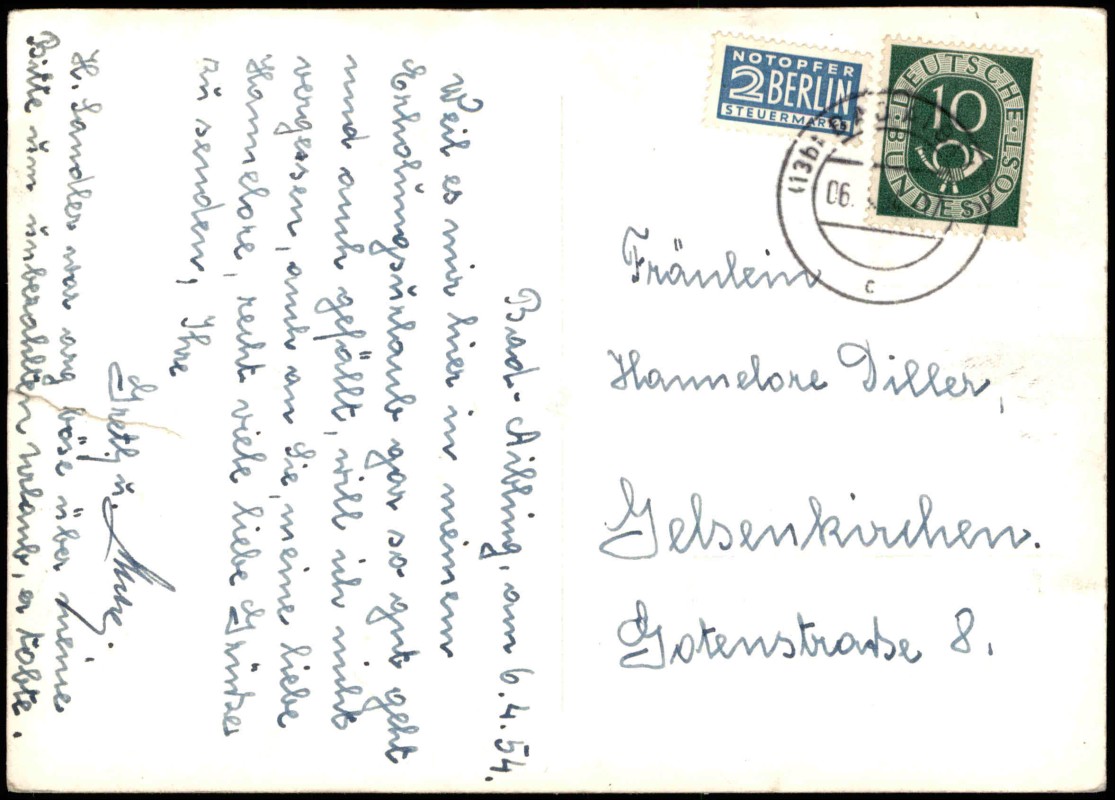 Bad-Aibling, am 6.4.54.
Weil es mir hier in meinem
Erholungsurlaub gar so gut geht
und auch gefällt, will ich nicht
vergessen, auch an Sie, meine liebe
Hannelore, recht viele liebe Grüsse
zu senden, Ihre
Gretl u.
H. Sandler war arg böse über meine
Bitte um unbezahlten Urlaub, er tobte.
NOTOPFER
2 BERLIN
STEUERMARKE
DEUTSCHE BUNDESPOST
10
(13b)
06.
c
Fräulein
Hannelore Diller,
Gelsenkirchen.
Gotenstraße 8.